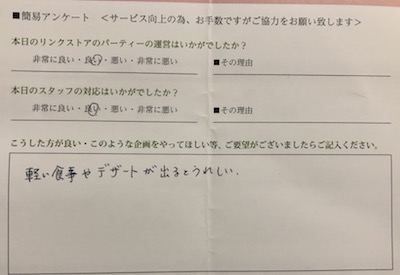 ■簡易アンケート <サービス向上の為、お手数ですがご協力をお願い致します>
本日のリンクストアのパーティーの運営はいかがでしたか?
非常に良い・良い・悪い・非常に悪い ■その理由
本日のスタッフの対応はいかがでしたか?
非常に良い・良い・悪い・非常に悪い ■その理由
こうした方が良い・このような企画をやってほしい等、ご要望がございましたらご記入ください。
軽い食事やデザートが出るとうれしい.